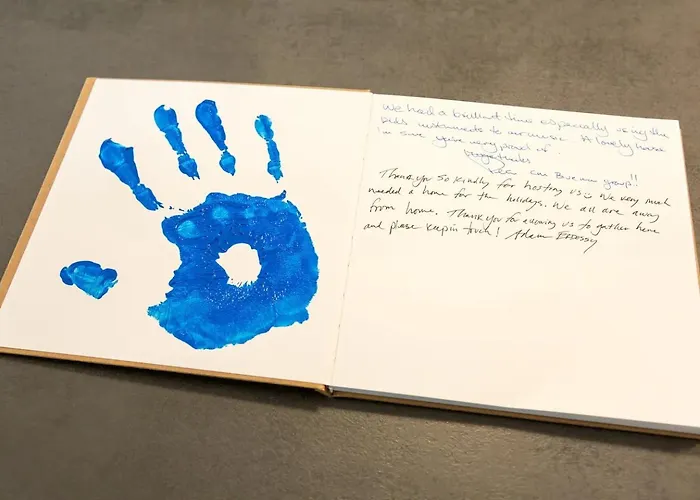 We had a brilliant time especially using the
instruments to our music. A lovely house
I'm sure you're very proud of.
group!!
Thank you so kindly for hosting us☺ We very much
needed a home for the holidays. We all are away
from home. Thank you for allowing us to gather here
and please keep in touch! Adam